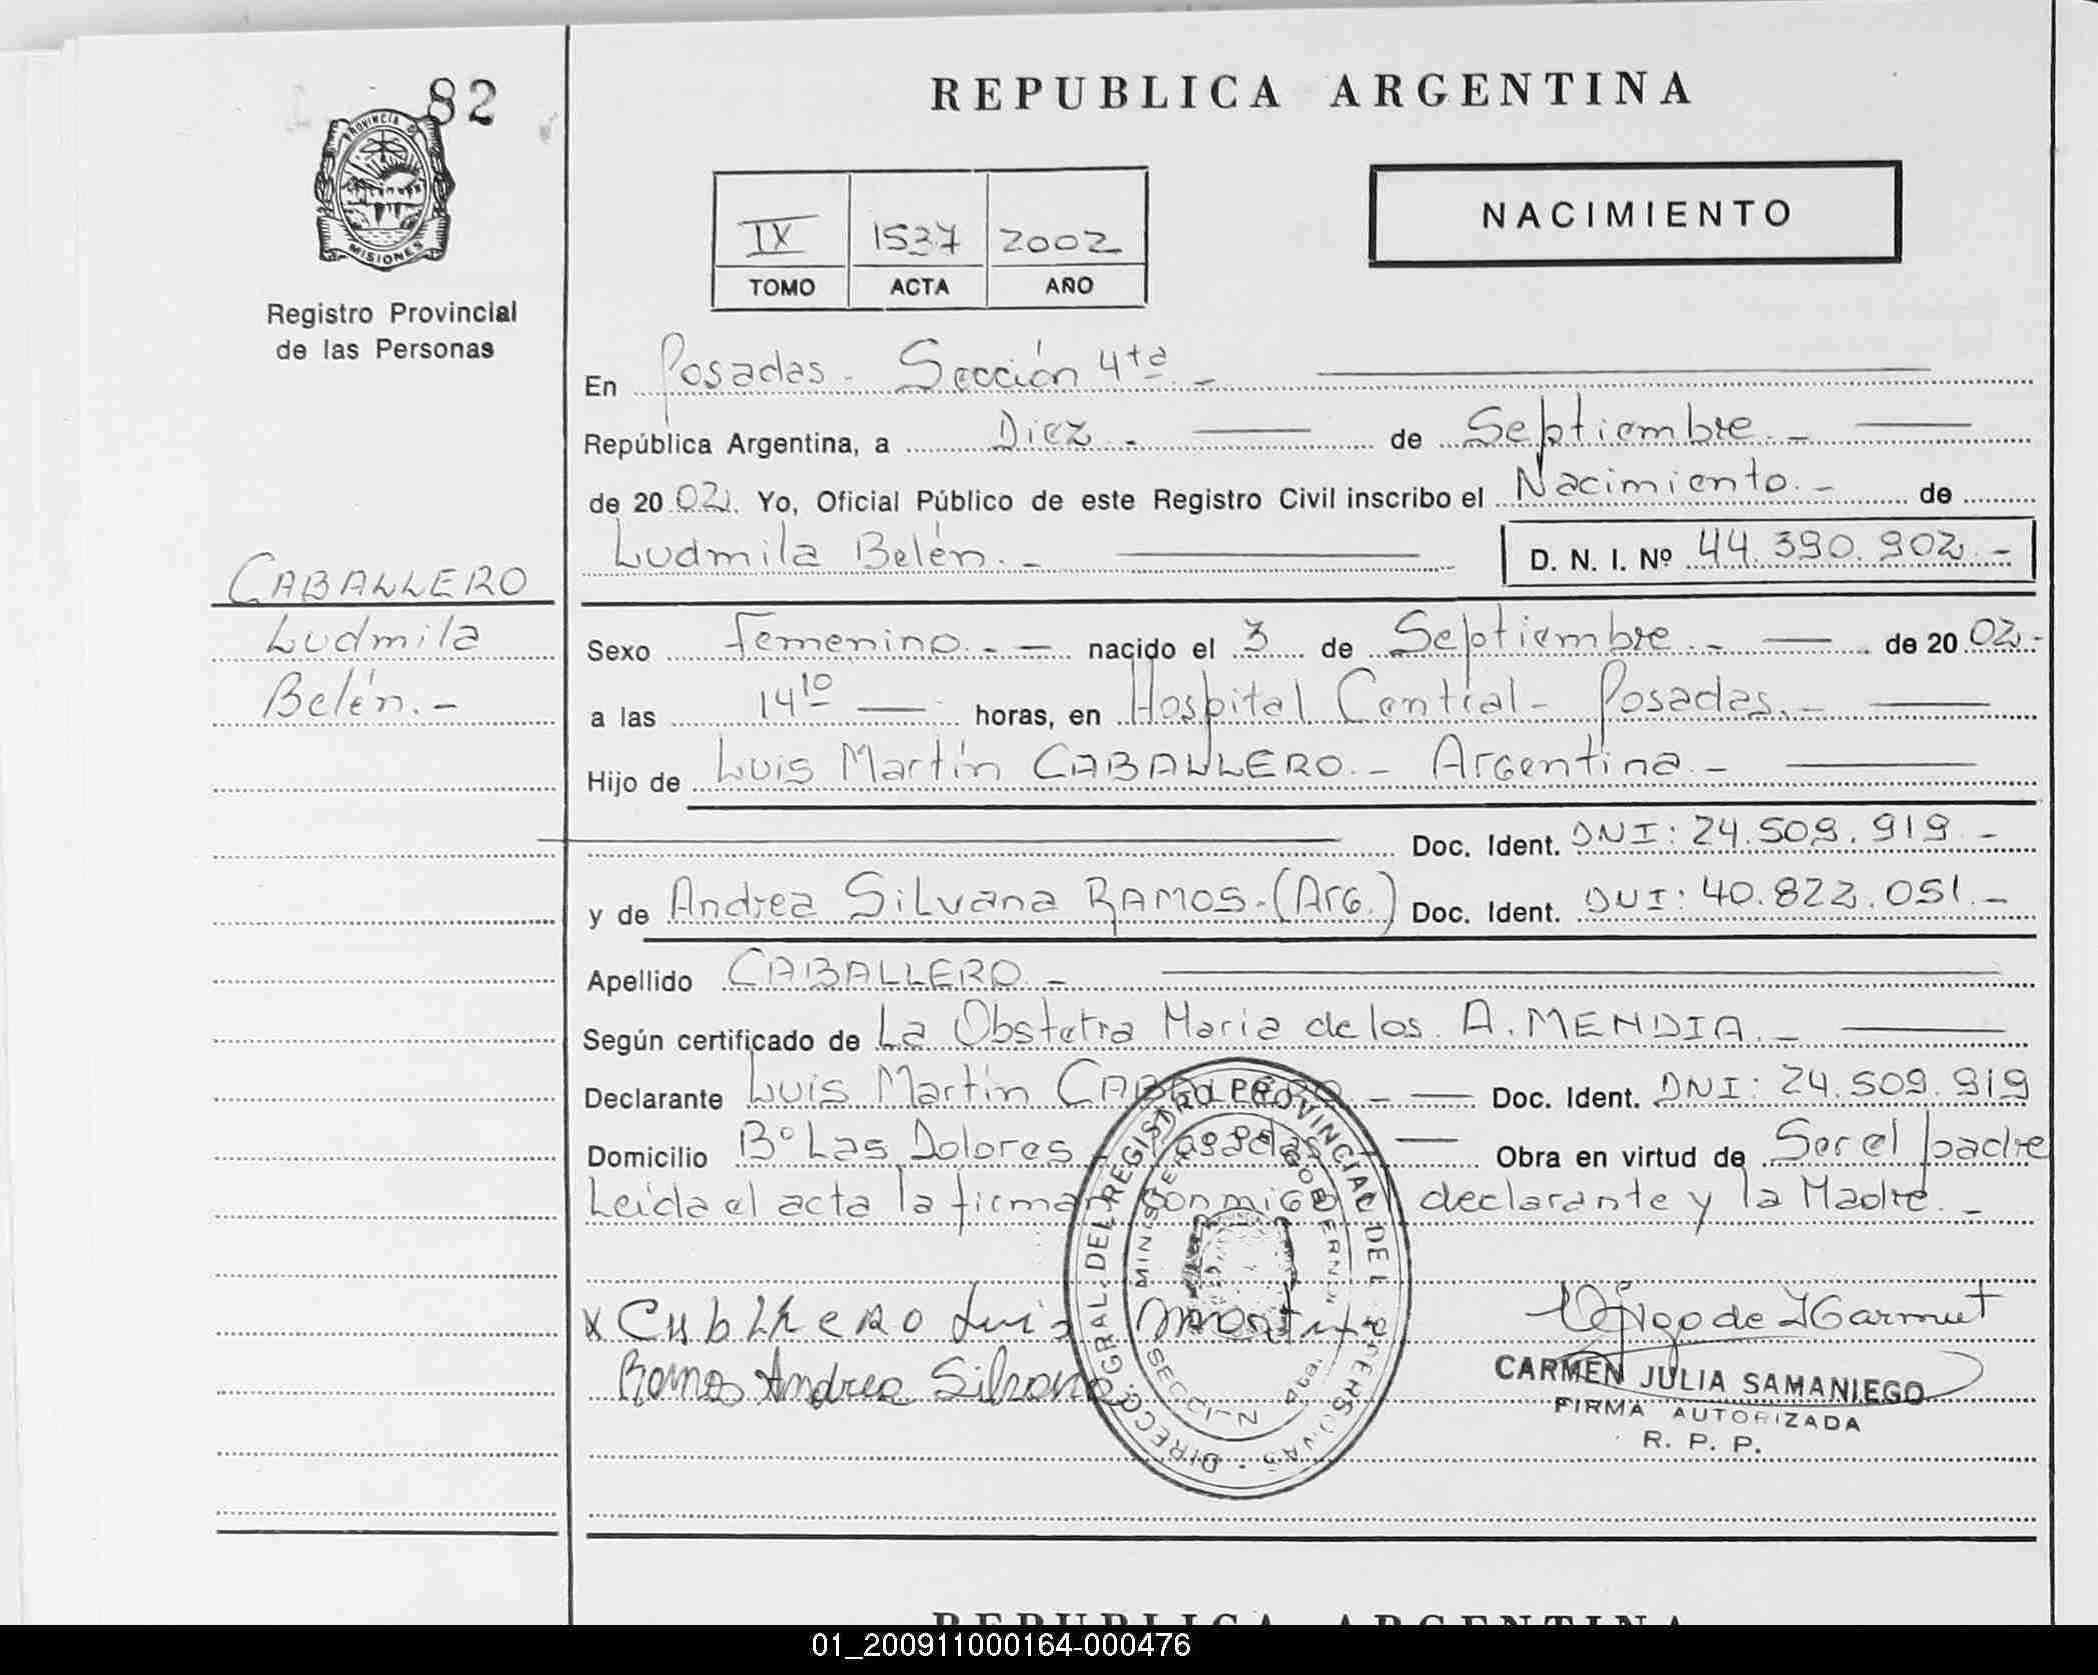 82
PROVINCIA DE
MISIONES
Registro Provincial
de las Personas
CABALLERO
Ludmila
Belén.-
REPUBLICA ARGENTINA
NACIMIENTO
IX 1537 2002
TOMO ACTA AÑO
En Posadas - Sección 4ta.-
República Argentina, a Diez.- de Septiembre.-
de 20 02. Yo, Oficial Público de este Registro Civil inscribo el Nacimiento.- de
Ludmila Belén.- D. N. I. Nº 44.390.902.-
Sexo Femenino.- nacido el 3 de Septiembre.- de 20 02.-
a las 14 10 horas, en Hospital Central - Posadas.-
Hijo de Luis Martín CABALLERO.- Argentina.-
Doc. Ident. DNI: 24.509.919.-
y de Andrea Silvana RAMOS.-(Arg.) Doc. Ident. DNI: 40.822.051.-
Apellido CABALLERO.-
Según certificado de La Obstetra Maria de los A. MENDIA.-
Declarante Luis Martín CABALLERO.- Doc. Ident. DNI: 24.509.919
Domicilio Bº Las Dolores - Posadas Obra en virtud de Ser el padre
Leída el acta la firman conmigo declarante y la Madre.-
x Cabllero Luis Martin
Ramos Andrea Silvana
CARMEN JULIA SAMANIEGO
FIRMA AUTORIZADA
R. P. P.
DIRECC. GRAL. DEL REGISTRO PROVINCIAL DE PERSONAS
REPUBLICA ARGENTINA
01_200911000164-000476